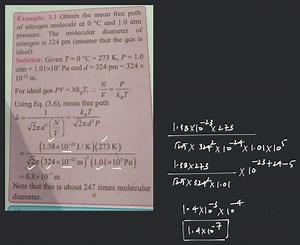 Example: 3.1 Obtain the mean free path
of nitrogen molecule at 0 °C and 1.0 atm
pressure. The molecular diameter of
nitrogen is 324 pm (assume that the gas is
ideal).
Solution: Given T = 0 °C = 273 K, P = 1.0
atm = 1.01×10⁵ Pa and d = 324 pm = 324 ×
10⁻¹² m.
For ideal gas PV = Nk_BT, ∴ N/V = P/(k_BT)
Using Eq. (3.6), mean free path
λ = 1/(√2πd²(N/V)) = k_BT/(√2πd²P)
= (1.38×10⁻²³ J/K)(273 K)
√2π(324×10⁻¹² m)²(1.01×10⁵ Pa)
= 0.8×10⁻⁷ m
Note that this is about 247 times molecular
diameter.
1.38×10⁻²³ × 273
× 324² × 10⁻²⁴ × 1.01×10⁵
1.38×273 × 10⁻²³⁺²⁴⁻⁵
× 324² × 1.01
1.4×10⁻³ × 10⁻⁴
1.4×10⁻⁷